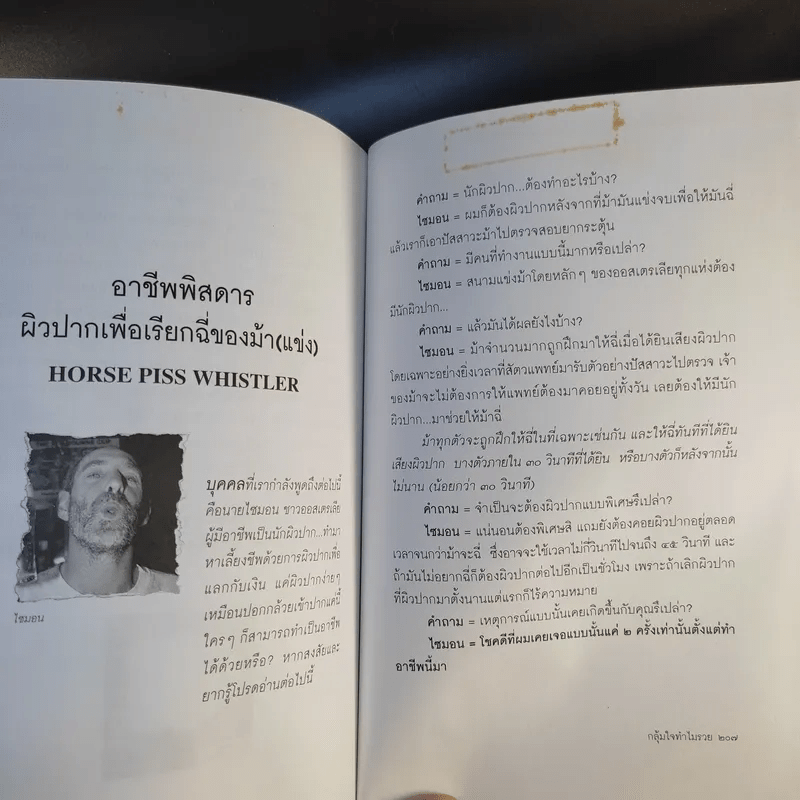 อาชีพพิสดาร
ผิวปากเพื่อเรียกฉี่ของม้า(แข่ง)
HORSE PISS WHISTLER
บุคคลที่เรากำลังพูดถึงต่อไปนี้
คือนายไซมอน ชาวออสเตรเลีย
ผู้มีอาชีพเป็นนักผิวปาก...ทำมา
หาเลี้ยงชีพด้วยการผิวปากเพื่อ
แลกกับเงิน แค่ผิวปากง่ายๆ
เหมือนปอกกล้วยเข้าปากแค่นี้
ใครๆ ก็สามารถทำเป็นอาชีพ
ได้ด้วยหรือ? หากสงสัยและ
ยากรู้โปรดอ่านต่อไปนี้
ไซมอน
คำถาม = นักผิวปาก...ต้องทำอะไรบ้าง?
ไซมอน = ผมก็ต้องผิวปากหลังจากที่ม้ามันแข่งจบเพื่อให้มันฉี่
แล้วเราก็เอาปัสสาวะม้าไปตรวจสอบยากระตุ้น
คำถาม = มีคนที่ทำงานแบบนี้มากหรือเปล่า?
ไซมอน = สนามแข่งม้าโดยหลักๆ ของออสเตรเลียทุกแห่งต้อง
มีนักผิวปาก...
คำถาม = แล้วมันได้ผลยังไงบ้าง?
ไซมอน = ม้าจำนวนมากถูกฝึกมาให้ฉี่เมื่อได้ยินเสียงผิวปาก
โดยเฉพาะอย่างยิ่งเวลาที่สัตวแพทย์มารับตัวอย่างปัสสาวะไปตรวจ เจ้า
ของม้าจะไม่ต้องการให้แพทย์ต้องมาคอยอยู่ทั้งวัน เลยต้องให้มีนัก
ผิวปาก...มาช่วยให้ม้าฉี่
ม้าทุกตัวจะถูกฝึกให้ฉี่ในที่เฉพาะเช่นกัน และให้ฉี่ทันทีที่ได้ยิน
เสียงผิวปาก บางตัวภายใน ๓๐ วินาทีที่ได้ยิน หรือบางตัวก็หลังจากนั้น
ไม่นาน (น้อยกว่า ๓๐ วินาที)
คำถาม = จำเป็นจะต้องผิวปากแบบพิเศษรึเปล่า?
ไซมอน = แน่นอนต้องพิเศษสิ แถมยังต้องคอยผิวปากอยู่ตลอด
เวลาจนกว่าม้าจะฉี่ ซึ่งอาจจะใช้เวลาไม่กี่วินาทีไปจนถึง ๔๕ วินาที และ
ถ้ามันไม่อยากฉี่ก็ต้องผิวปากต่อไปอีกเป็นชั่วโมง เพราะถ้าเลิกผิวปาก
ที่ผิวปากมาตั้งนานแต่แรกก็ไร้ความหมาย
คำถาม = เหตุการณ์แบบนั้นเคยเกิดขึ้นกับคุณรึเปล่า?
ไซมอน = โชคดีที่ผมเคยเจอแบบนั้นแค่ ๒ ครั้งเท่านั้นตั้งแต่ทำ
อาชีพนี้มา
กลุ้มใจทำไมรวย ๒๐๗